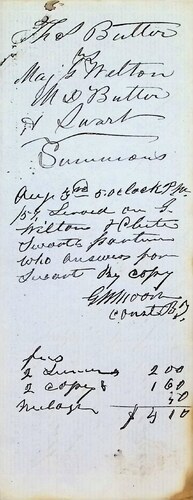 Thos Butler
vs
Maj G Wilton
M D Butler
& Swart
Summons
Augt 3rd 5. oclock P.M.
1854 Served on G.
Wilton & Clute
Swarts partner
who answers for
Swart By copy
G W Moon
Const B.T.
fees
2 Summons 2 00
2 copys 1 60
Milage 50
$ 4 10